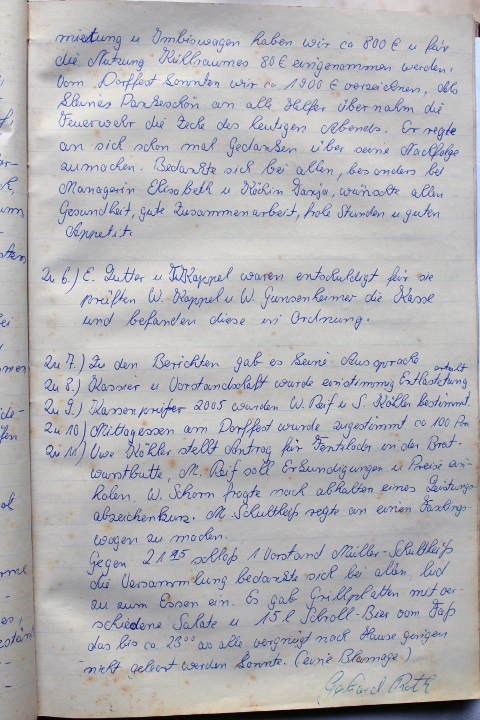 mietung u Imbiswagen haben wir ca 800 € u für
die Nutzung Kühlraumes 80 € eingenommen werden.
Vom Dorffest konnten wir ca 1900 € verzeichnen. Als
kleines Dankeschön an alle Helfer übernahm die
Feuerwehr die Zeche des heutigen Abends. Er regte
an sich schon mal gedanken über seine Nachfolge
zumachen. Bedankte sich bei allen, besonders bei
Managerin Elisabeth u Köchin Tanja, wünschte allen
Gesundheit, gute Zusammenarbeit, frohe Stunden u guten
Appetit.
Zu 6.) E. Zutter u Kappel waren entschuldigt für sie
prüften W. Kappel u W. Gunsenheimer die Kasse
und befanden diese in Ordnung.
Zu 7.) Zu den Berichten gab es keine Aussprache
Zu 8.) Kassier u Vorstandschaft wurde einstimmig Entlastung erteilt
Zu 9.) Kassenprüfer 2005 wurden W. Reif u S. Köhler bestimmt
Zu 10) Mittagessen am Dorffest wurde zugestimmt ca 100 Prn
Zu 11) Uwe Köhler stellt Antrag für Ventilator in der Brat-
wurstbutte, M. Reif soll Erkundigungen u Preise ein-
holen. W. Schorn fragte nach abhalten eines Leistungs-
abzeichenkurs. M. Schultheiß regte an einen Faschings-
wagen zu machen.
Gegen 21 95 schloß 1 Vorstand Müller-Schultheiß
die Versammlung bedankte sich bei allen, lud
zu zum Essen ein. Es gab Grillplatten mit ver-
schiedene Salate u 15 l Schroll-Bier vom Faß
das bis ca 23 00 als alle vergnügt nach Hause gingen
nicht geleert werden konnte. (eine Blamage)